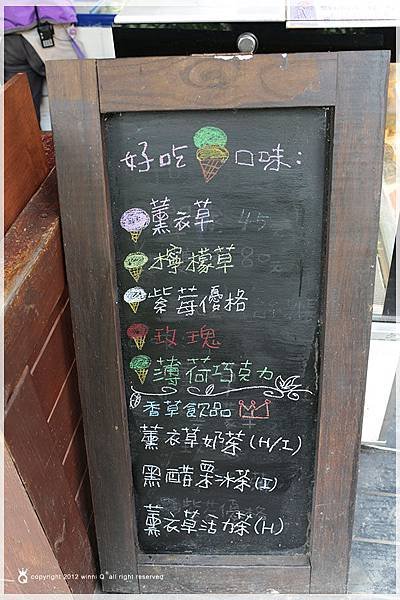 好吃口味:
薰衣草 45
檸檬草 80
紫莓優格
玫瑰
薄荷巧克力
香草飲品
薰衣草奶茶(H/I)
黑醋栗冰茶(I)
薰衣草活力茶(H)
copyright 2012 winni Q all right reserved